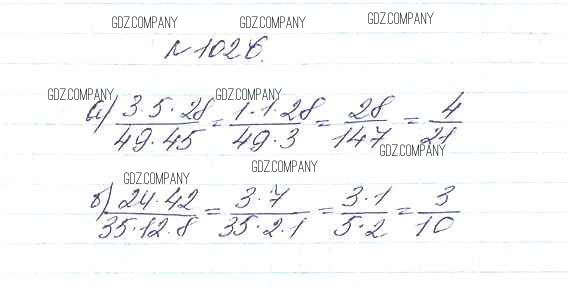 GDZ.COMPANY GDZ.COMPANY GDZ.COMPANY
№1026.
GDZ.COMPANY GDZ.COMPANY
а) 3·5·28/49·45 = 1·1·28/49·3 = 28/147 = 4/21
GDZ.COMPANY
GDZ.COMPANY
GDZ.COMPANY
б) 24·42/35·12·8 = 3·7/35·2·1 = 3·1/5·2 = 3/10